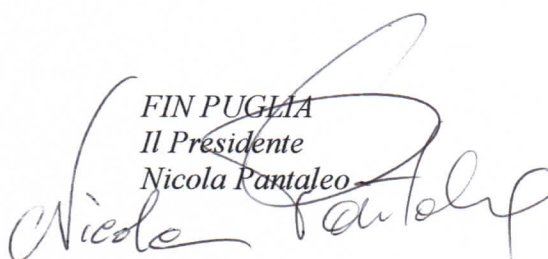 FIN PUGLIA
Il Presidente
Nicola Pantaleo
Nicola Pantaleo